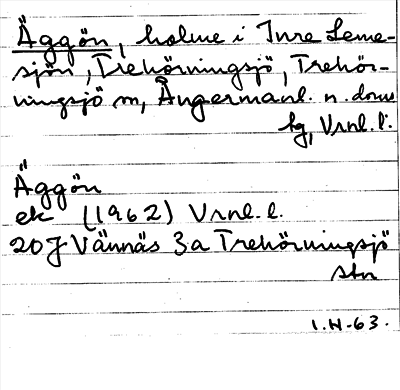 Äggön, holme i Inre Leme-
sjön, Trehörningsjö, Trehör-
ningsjö sn, Ångermanl. n. doms
hg, Vrnl. l.
Äggön
ek (1962) Vrnl. l.
20J Vännäs 3a Trehörningsjö
stn
I.H-63.